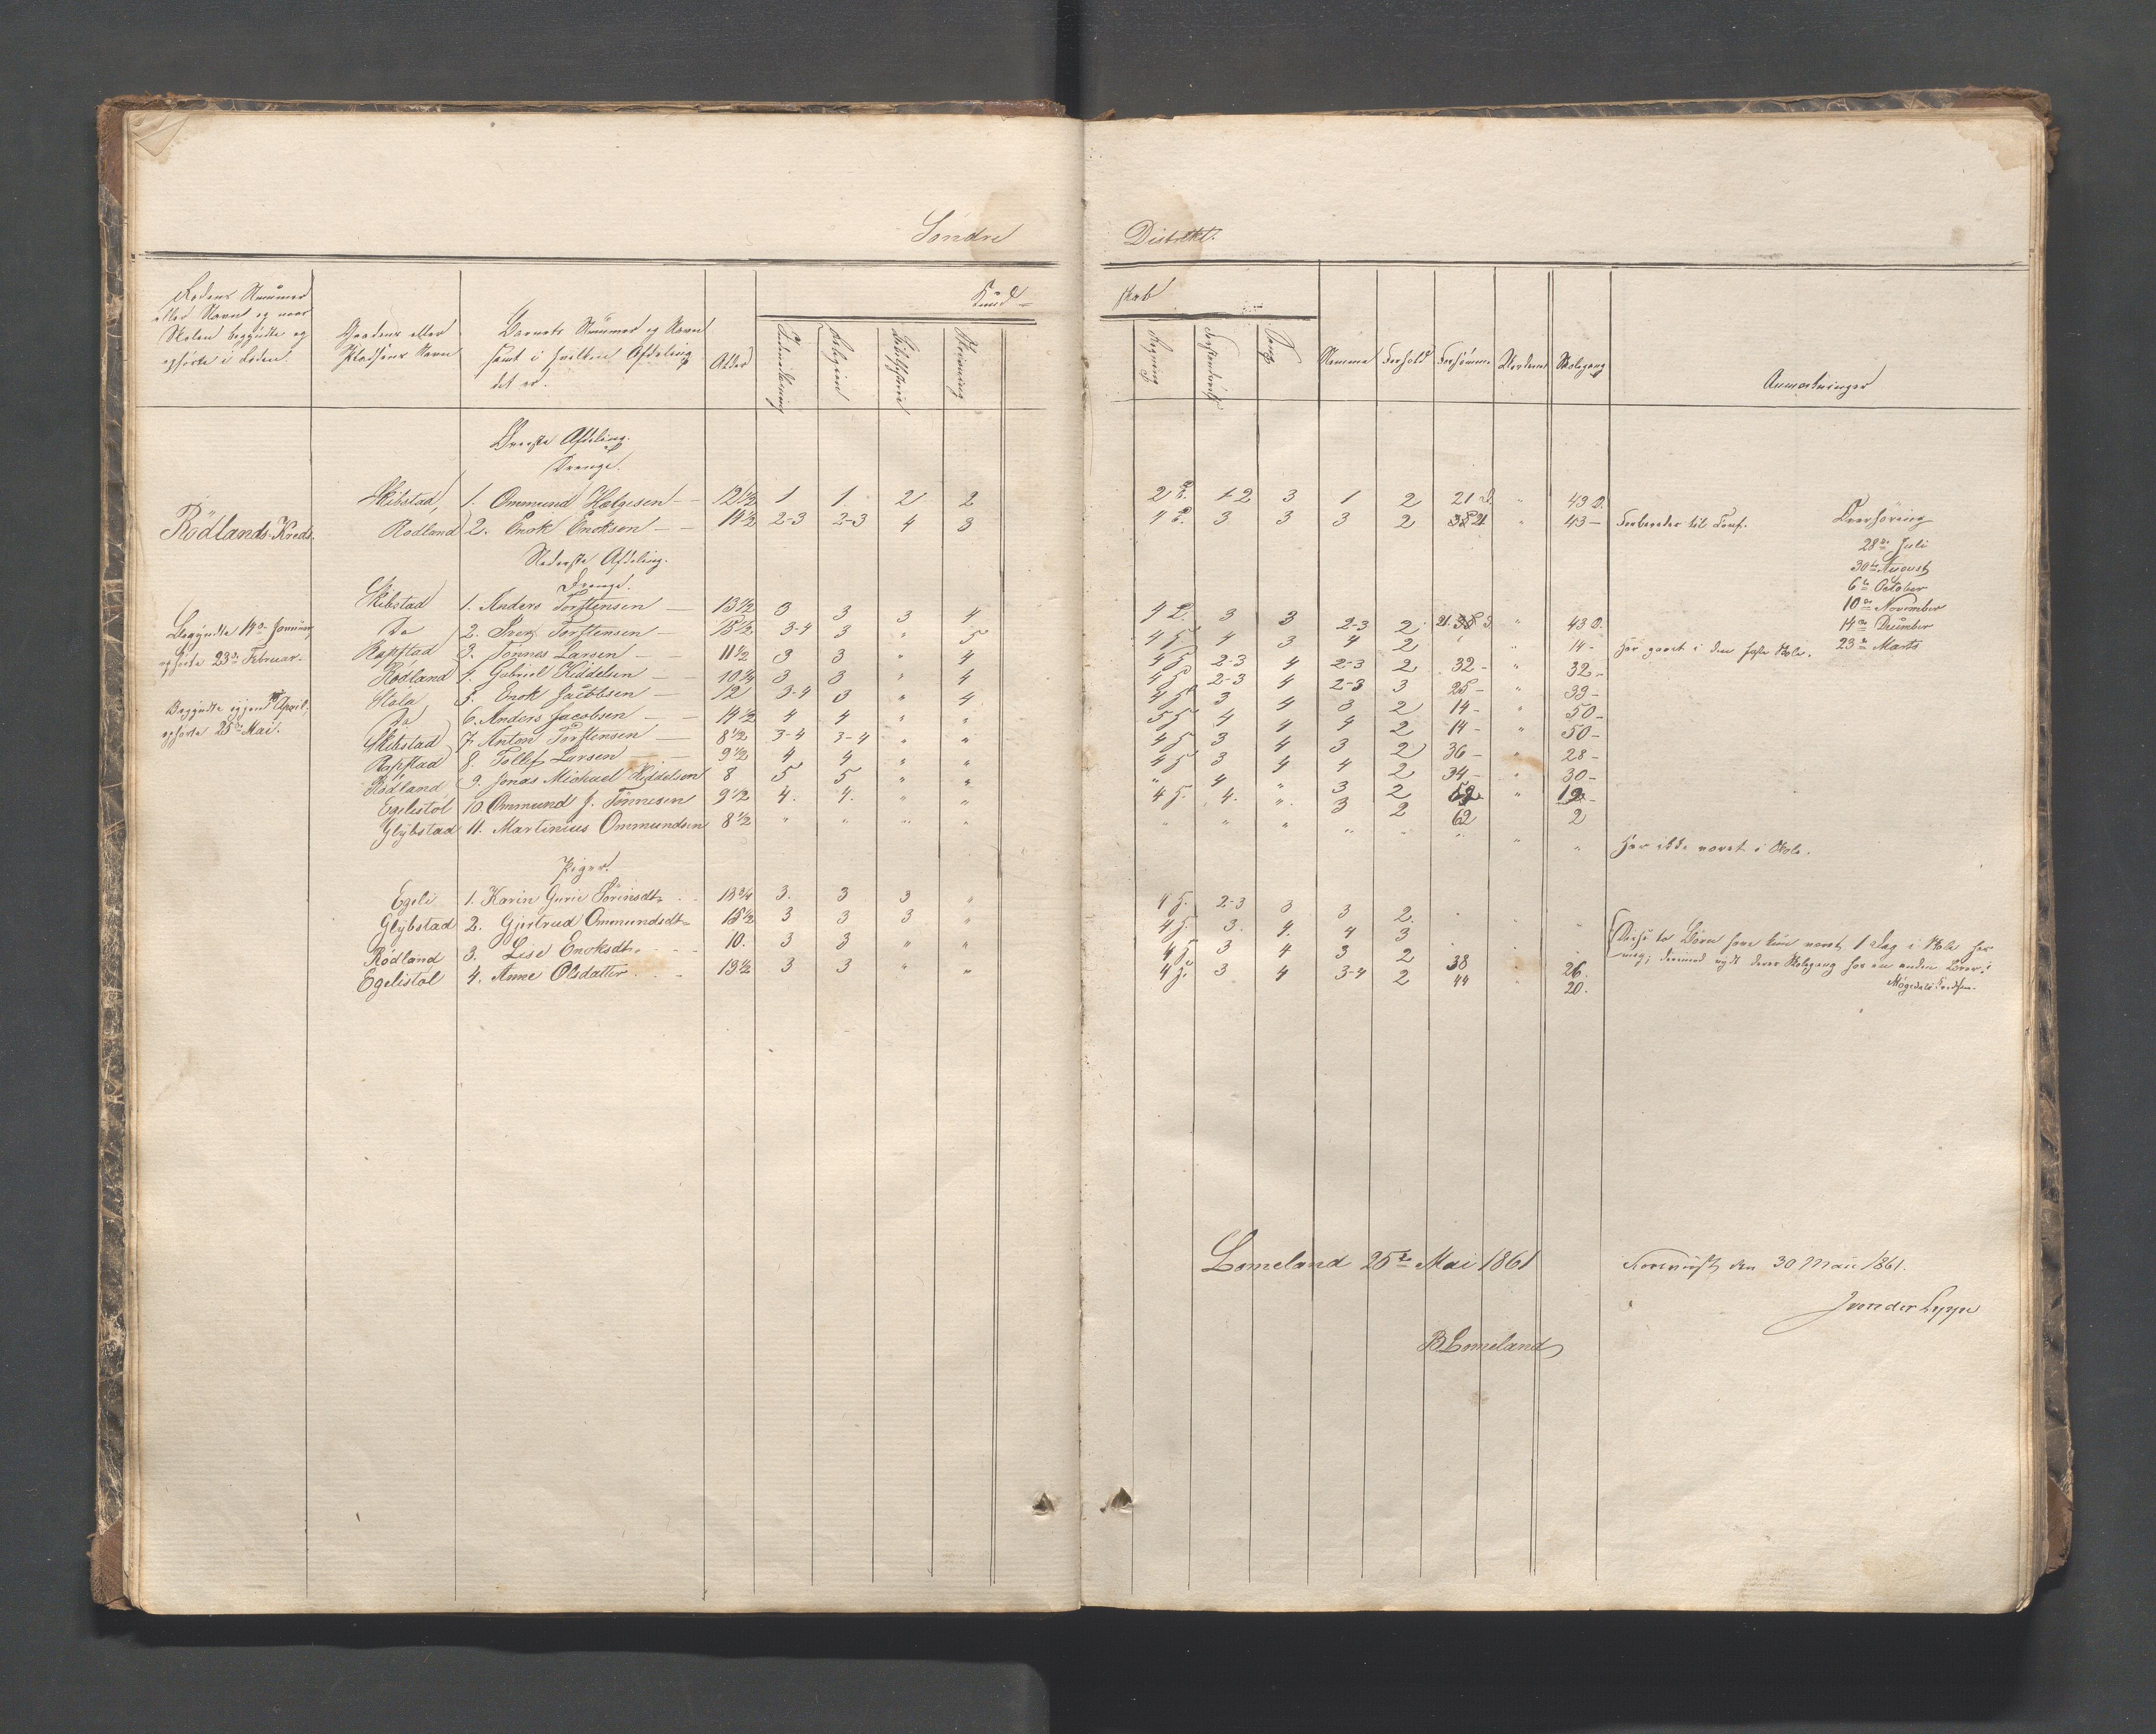 Søndre Distrikt.
Rodens Nummer
eller Navnt og naar
Skolen begyndte og
ophørte i Roden.
Gaardens eller
Pladsens Navn
Barnets Nummer og Navn
samt i hvilken Afdeling
det er.
Alder
Kund-
skab
Indenadlæsning
Religion
Bibelhistorie
Skrivning
Regning
Forstandsøv.
Sang
Nemme
Forhold
Forsømme
Skoledeie
Skolegang
Anmærkninger
Øverste Afdeling.
Drenge.
Skibstad, 1. Ommund Hælgesen — 12 1/2 1 1. 2 2 2 1-2 3 1 2 21 D. " 43 D.
Rødlands Kreds. Rødland 2. Enok Enoksen — 14 1/2 2-3 2-3 4 3 4 3 3 3 2 " 43 — Forbereder til Conf.
Overhøring
28de Juli
30te August
6te October
10de November
14de December
23de Marts
Nederste Afdeling.
Drenge.
Skibstad 1. Anders Torstensen — 13 1/2 3 3 3 4 4 3 3 2-3 2 " 43 D.
Do 2. Sven Torstensen — 15 1/2 3-4 3 " 5 4 4 3 4 2 " 14 - Har gaaet i den faste Skole.
Rapstad 3. Tønnes Larsen — 11 1/2 3 3 " 4 4 2-3 4 2-3 2 32 - " 32 -
Rødland 4. Gabriel Kiddelsen — 10 1/4 3 3 " 4 4 2-3 4 2-3 3 25 - " 39 -
Stola 5. Enok Jacobsen — 12 3-4 3 " 4 4 3 4 3 2 14 - " 50 -
Do 6. Anders Jacobsen — 14 1/2 4 4 " " 5 4 4 4 2 14 - " 50 -
Skibstad 7. Anton Torstensen — 8 1/2 3-4 3-4 " " 4 3 4 3 2 36 - " 28 -
Rapstad 8. Tollef Larsen — 9 1/2 4 4 " " 4 3 4 4 2 34 - " 30 -
Rødland 9. Jonas Michael Kiddelsen 8 5 5 " " " 4 " 3 2 52 " 12 -
Egelistøl 10. Ommund J. Tønnesen 9 1/2 4. 4. " " 4 4. " 3 2 62 2
Glybstad 11. Martinius Ommundsen 8 1/2 " " " " " " " " " " " " Har ikke været i Skole.
Begyndte 14de Januar,
ophørte 23de Februar.
Begyndte igjen April,
ophørte 25de Mai.
Piger.
Egeli 1. Karin Gurie Sørensdt. 13 3/4 3. 3 3 " 4 2-3 3 3 2.
Glybstad 2. Gjertrud Ommundsdt. 15 1/2 3 3 3 " 4 3. 4. 4 3
Rødland 3. Lise Enoksdt. 10. 3 3 " " 4 3 4 3 2 38 26.
Egelistøl 4. Anne Olsdatter 13 1/2 3 3 " " 4 3 4 3-4 2 44 20.
Disse to Børn have kun været 1 Dag i Skole hos
mig; derimod nydt deres Skolegang hos en anden Lærer i
Lomeland 25de Mai 1861
B Lomeland
den 30 Mai 1861.
J von der Lippe